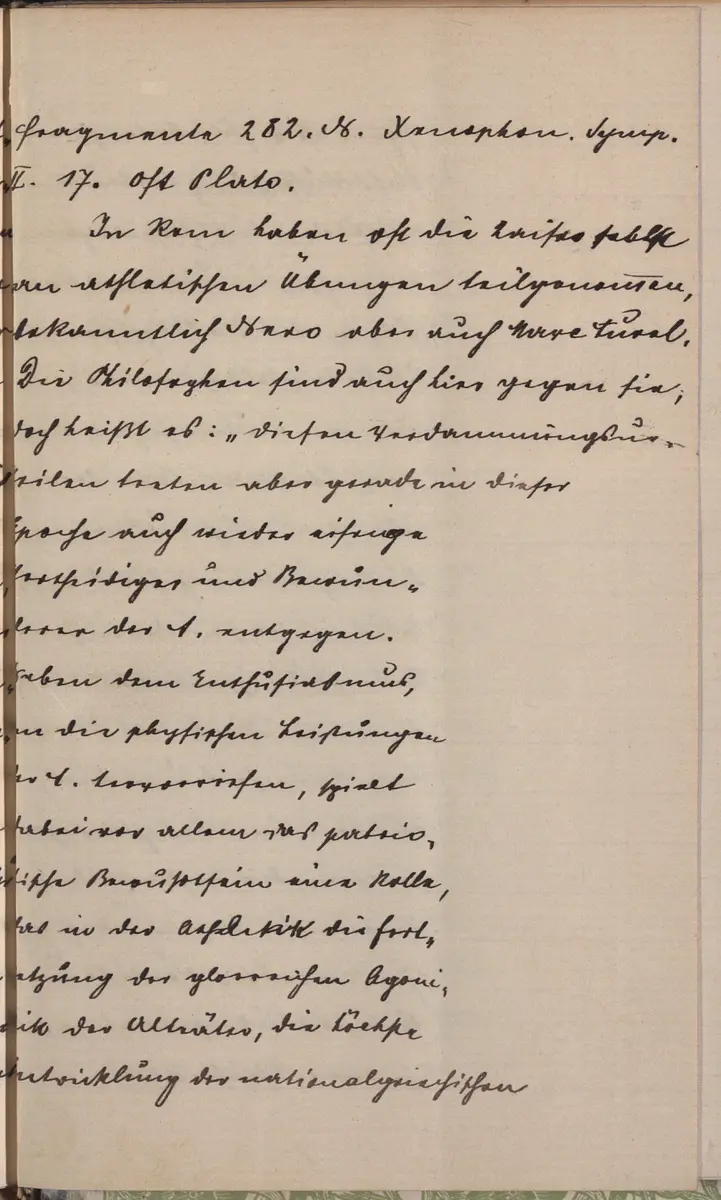 fragmente 282. N. Xenophon. Symp.
II. 17. Oft Plato.
In Rom haben oft die Kaiser selbst
an athletischen Übungen teilgenommen,
bekanntlich Nero aber auch Marc Aurel.
Die Philosophen sind auch hier gegen sie,
doch heißt es: „Diesen Verdammungsur„
teilen treten aber gerade in dieser
Epoche auch wieder eifrige
Vertheidiger und Bewun„
derer der A. entgegen.
Neben dem Enthusiasmus,
den die physischen Leistungen
der A. hervorriefen, spielt
dabei vor allem das patrio„
tische Bewußtsein eine Rolle,
das in der Athletik die Fort„
setzung der glorreichen Agoni„
stik der Altväter, die höchste
Entwicklung der nationalgriechischen